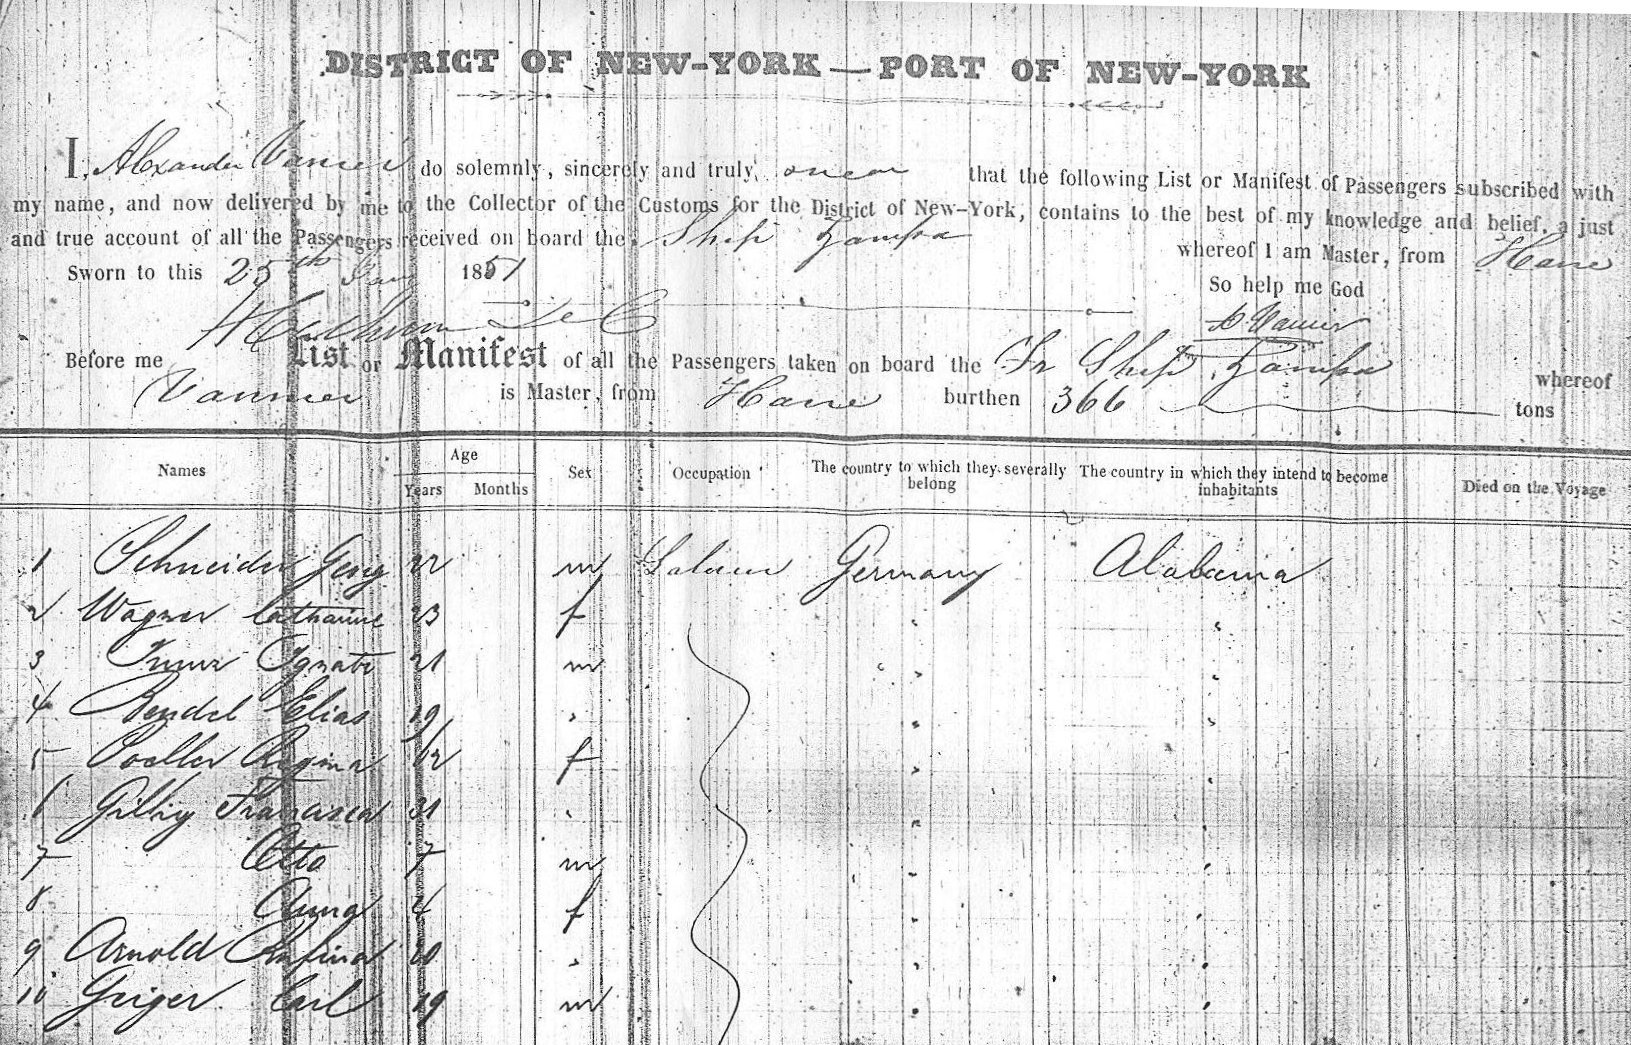 DISTRICT OF NEW-YORK — PORT OF NEW-YORK
I, Alexander Vanier do solemnly, sincerely and truly, swear that the following List or Manifest of Passengers subscribed with
my name, and now delivered by me to the Collector of the Customs for the District of New-York, contains to the best of my knowledge and belief, a just
and true account of all the Passengers received on board the Ship Zampa whereof I am Master, from Havre
Sworn to this 25th 1851 So help me God
A Vanier
Before me
List or Manifest of all the Passengers taken on board the Fr Ship Zampa whereof
Vannier is Master, from Havre burthen 366 tons
Names Age Years Months Sex Occupation The country to which they severally belong The country in which they intend to become inhabitants Died on the Voyage
1 Schneider Georg 22 m Germany Alabama
2 Wagner Catharine 23 f "
3 21 m "
4 Bendel Elias 19 " "
5 Regina f "
6 Francisca 31 " "
7 Otto 7 m "
8 4 f "
9 Arnold 20 " "
10 Geiger Carl 19 m "